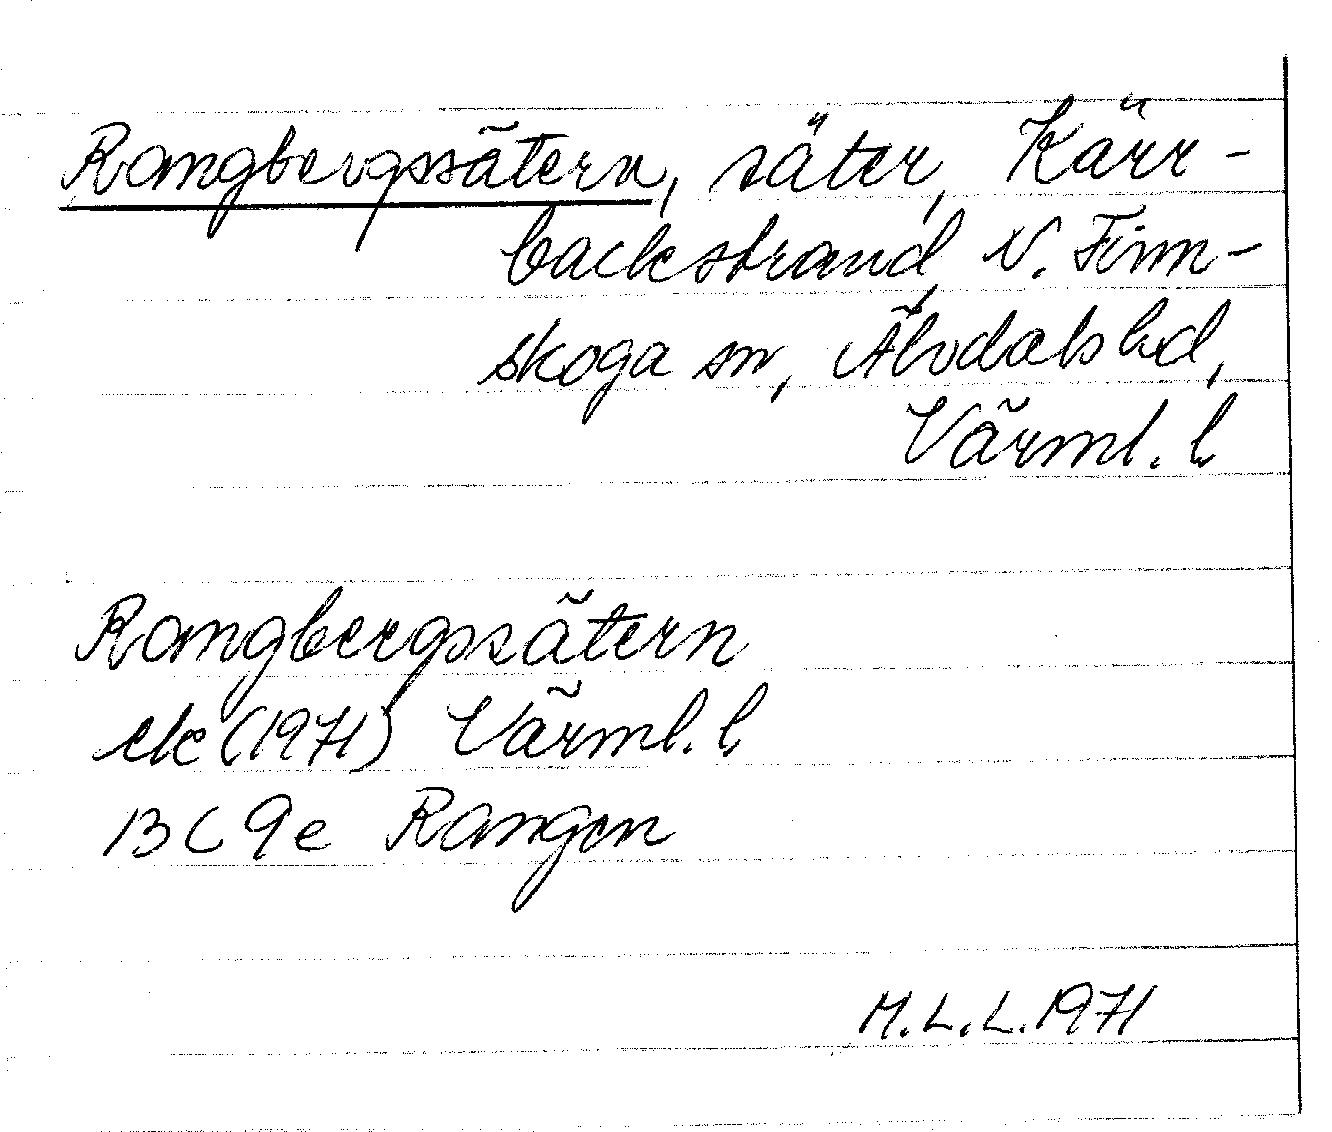 Rangbergssätern, säter, Kärr-
backstrand, N. Finn-
skoga sn, Älvdals hd,
Värml. l.
Rangbergssätern
ek (1971) Värml. l.
13 C 9e Rangen
M.L.L. 1971